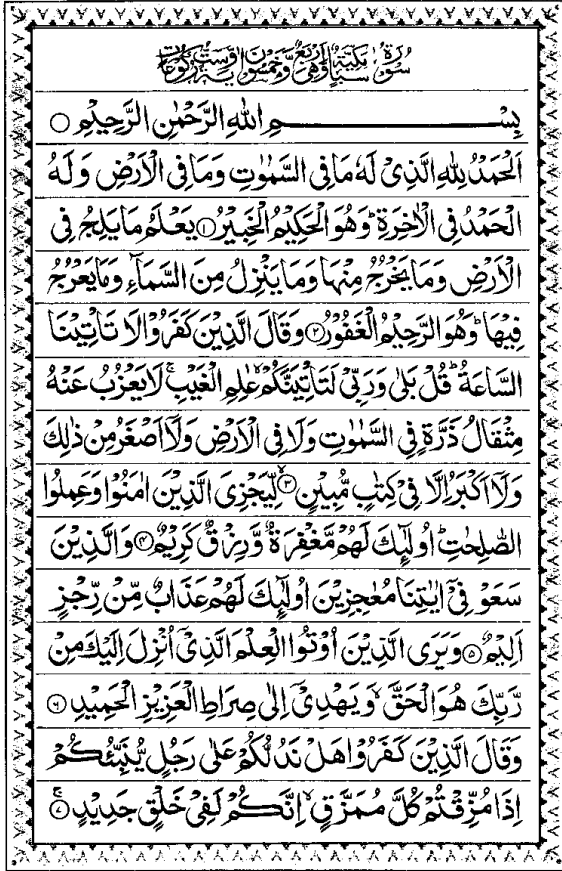 سُوْرَةُ سَبَاٍ مَّكِّيَّةٌ وَّهِيَ اَرْبَعٌ وَّخَمْسُوْنَ اٰيَةً وَّسِتُّ رُكُوْعَاتٍ
بِسْمِ اللهِ الرَّحْمٰنِ الرَّحِيْمِ ○
اَلْحَمْدُ لِلّٰهِ الَّذِيْ لَهٗ مَا فِي السَّمٰوٰتِ وَمَا فِي الْاَرْضِ وَلَهُ
الْحَمْدُ فِي الْاٰخِرَةِ ؕ وَهُوَ الْحَكِيْمُ الْخَبِيْرُ ۝۱ يَعْلَمُ مَا يَلِجُ فِي
الْاَرْضِ وَمَا يَخْرُجُ مِنْهَا وَمَا يَنْزِلُ مِنَ السَّمَآءِ وَمَا يَعْرُجُ
فِيْهَا ؕ وَهُوَ الرَّحِيْمُ الْغَفُوْرُ ۝۲ وَقَالَ الَّذِيْنَ كَفَرُوْا لَا تَاْتِيْنَا
السَّاعَةُ ؕ قُلْ بَلٰى وَرَبِّيْ لَتَاْتِيَنَّكُمْ ۙ عٰلِمِ الْغَيْبِ ۚ لَا يَعْزُبُ عَنْهُ
مِثْقَالُ ذَرَّةٍ فِي السَّمٰوٰتِ وَلَا فِي الْاَرْضِ وَلَاۤ اَصْغَرُ مِنْ ذٰلِكَ
وَلَاۤ اَكْبَرُ اِلَّا فِيْ كِتٰبٍ مُّبِيْنٍ ۝۳ لِّيَجْزِيَ الَّذِيْنَ اٰمَنُوْا وَعَمِلُوا
الصّٰلِحٰتِ ؕ اُولٰٓئِكَ لَهُمْ مَّغْفِرَةٌ وَّرِزْقٌ كَرِيْمٌ ۝۴ وَالَّذِيْنَ
سَعَوْ فِيْۤ اٰيٰتِنَا مُعٰجِزِيْنَ اُولٰٓئِكَ لَهُمْ عَذَابٌ مِّنْ رِّجْزٍ
اَلِيْمٌ ۝۵ وَيَرَى الَّذِيْنَ اُوْتُوا الْعِلْمَ الَّذِيْۤ اُنْزِلَ اِلَيْكَ مِنْ
رَّبِّكَ هُوَ الْحَقَّ ۙ وَيَهْدِيْۤ اِلٰى صِرَاطِ الْعَزِيْزِ الْحَمِيْدِ ۝۶
وَقَالَ الَّذِيْنَ كَفَرُوْا هَلْ نَدُلُّكُمْ عَلٰى رَجُلٍ يُّنَبِّئُكُمْ
اِذَا مُزِّقْتُمْ كُلَّ مُمَزَّقٍ ۙ اِنَّكُمْ لَفِيْ خَلْقٍ جَدِيْدٍ ۝۷ ۚ